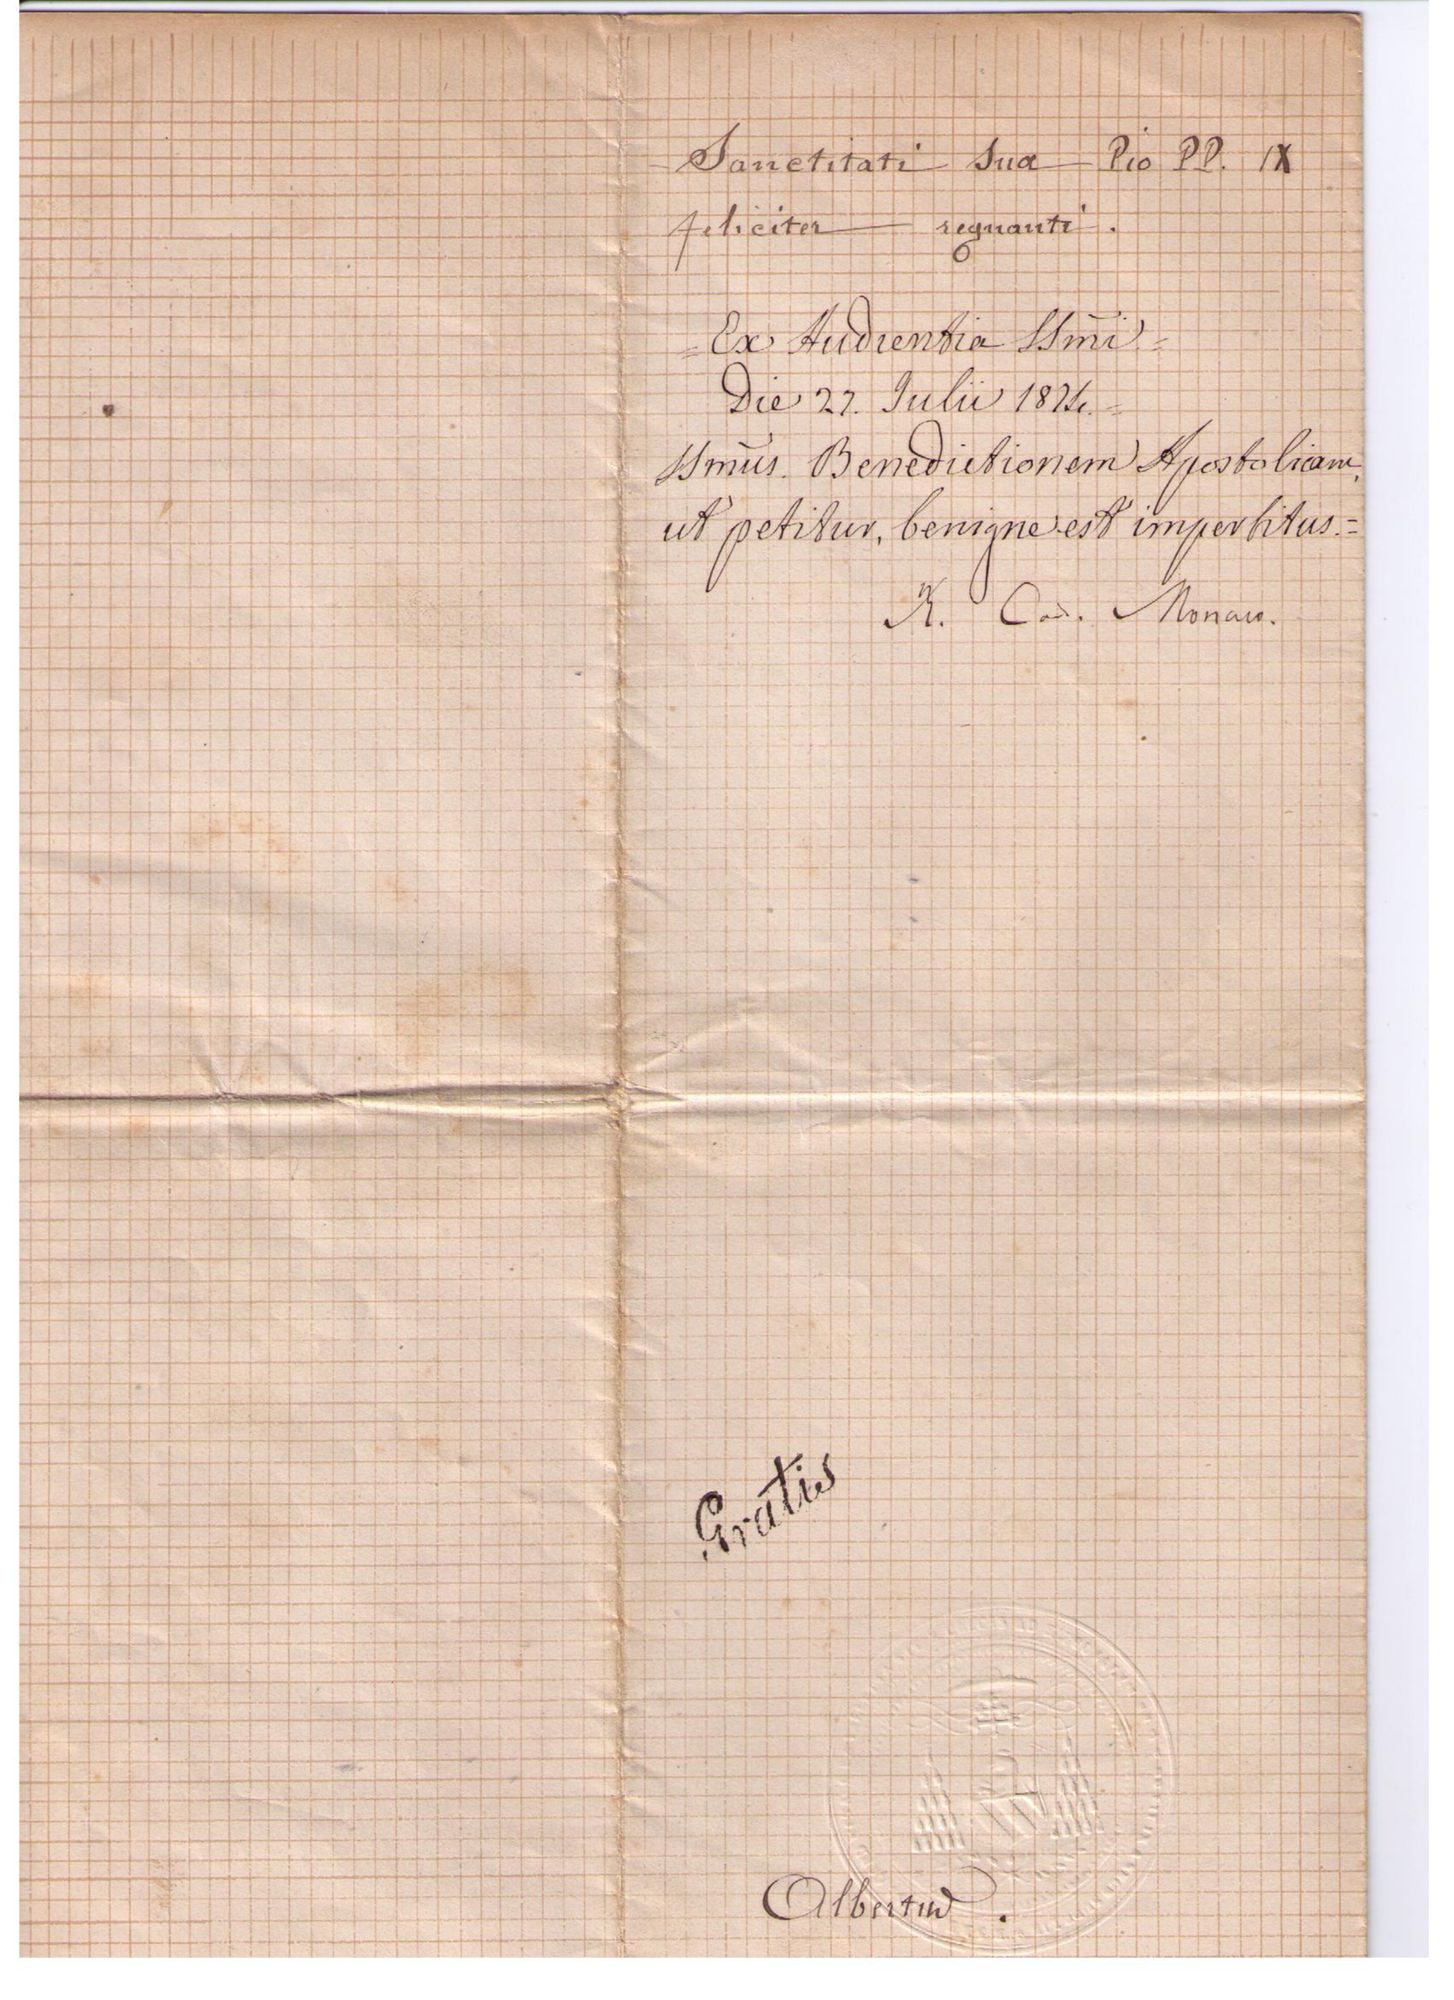 Sanctitati Suæ Pio PP. IX
feliciter regnanti.
Ex Audientia SSm̄i
Die 27. Julii 1874.
SSm̄us. Benedictionem Apostolicam,
ut petitur, benigne est impertitus.
R. Car. Monaco.
Gratis
Albertus.